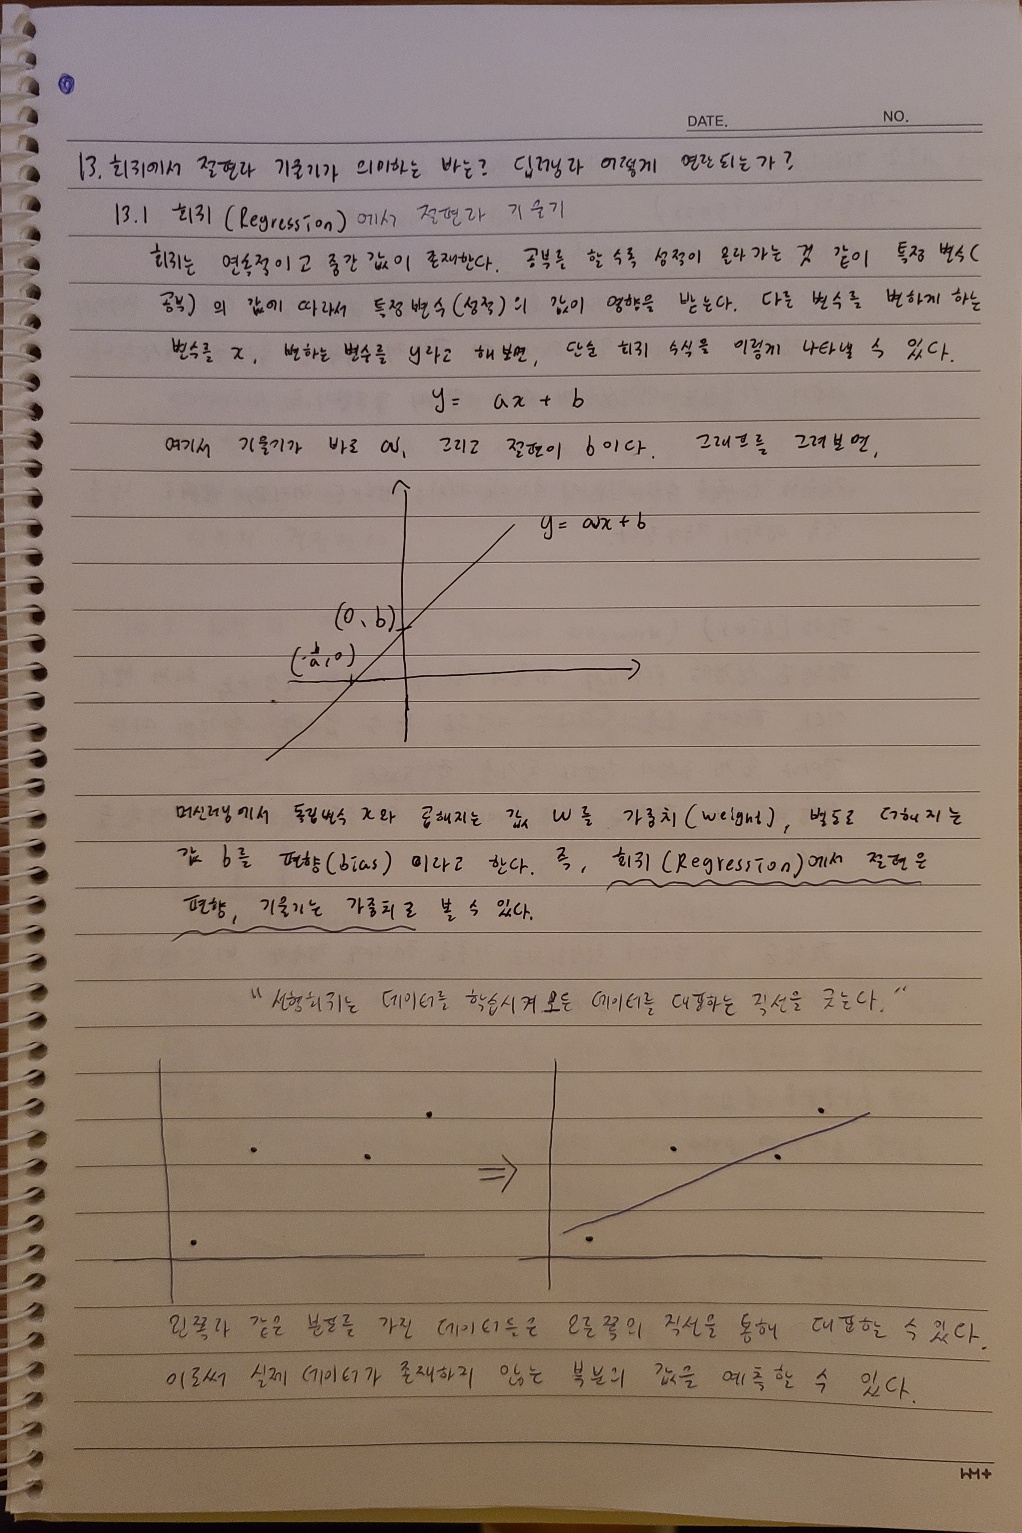 DATE.
NO.
13. 회귀에서 절편과 기울기가 의미하는 바는? 딥러닝과 어떻게 연관되는가?
13.1 회귀 (Regression) 에서 절편과 기울기
회귀는 연속적이고 중간 값이 존재한다. 공부를 할 수록 성적이 올라가는 것 같이 특정 변수(
공부) 의 값에 따라서 특정 변수(성적)의 값이 영향을 받는다. 다른 변수를 변하게 하는
변수를 x, 변하는 변수를 y라고 해보면, 단순 회귀 수식을 이렇게 나타낼 수 있다.
y = ax + b
여기서 기울기가 바로 a, 그리고 절편이 b이다. 그래프를 그려보면,
y = ax + b
(0, b)
(-b/a, 0)
머신러닝에서 독립변수 x와 곱해지는 값 W를 가중치(weight), 별도로 더해지는
값 b를 편향(bias) 이라고 한다. 즉, 회귀(Regression)에서 절편은
편향, 기울기는 가중치로 볼 수 있다.
"선형회귀는 데이터를 학습시켜 모든 데이터를 대표하는 직선을 긋는다."
⇒
왼쪽과 같은 분포를 가진 데이터들은 오른쪽의 직선을 통해 대표할 수 있다.
이로써 실제 데이터가 존재하지 않는 부분의 값을 예측할 수 있다.